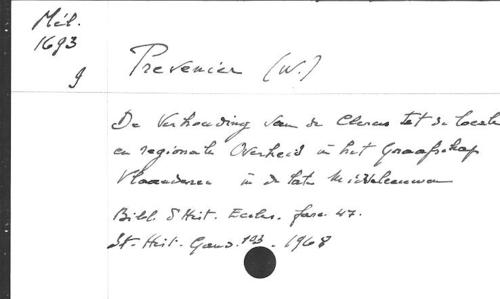 Mél.
1693
9
Prevenier (W.)
De Verhouding van de Clerus tot de locale
en regionale Overheid in het Graafschap
Vlaanderen in de late Middeleeuwen
Bibl. d'Hist. Eccles. fasc. 47.
St. Hist. Gand. 193. 1968